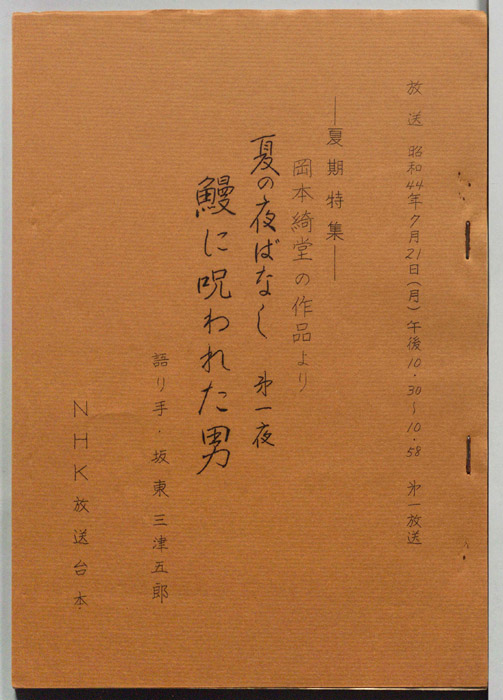 放送 昭和44年7月21日(月)午後10.30〜10.58 第一放送
―夏期特集―
岡本綺堂の作品より
夏の夜ばなし 第一夜
鰻に呪われた男
語り手・坂東三津五郎
NHK放送台本